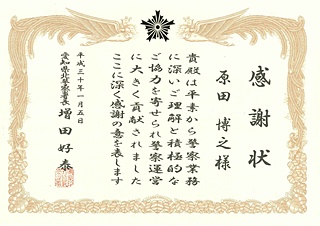 感謝状
原田 博之様
貴殿は平素から警察業務
に深いご理解と積極的な
ご協力を寄せられ警察運営
に大きく貢献されました
ここに深く感謝の意を表します
平成三十年一月五日
愛知県北警察署長 増田 好泰